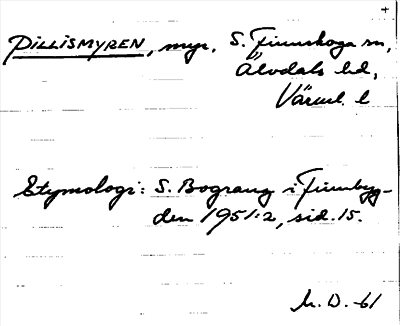 +
PILLISMYREN, myr, S. Finnskoga sn,
Älvdals hd,
Värml. l
Etymologi: S. Bograng i Finnbyg-
den 1951:2, sid. 15.
M. D. -61